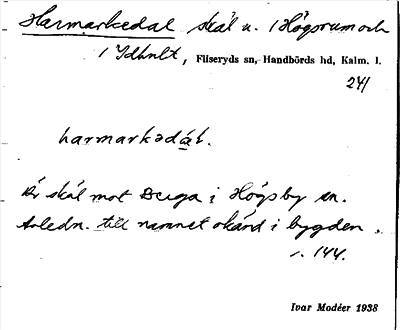 Harmarkedal skäl u. 1 Högsrum och
1 Idhult, Fliseryds sn, Handbörds hd, Kalm. l.
241
harmarkədạ́l.
Är skäl mot Duga i Högsby sn.
Anledn. till namnet okänd i bygden.
s. 144.
Ivar Modéer 1938